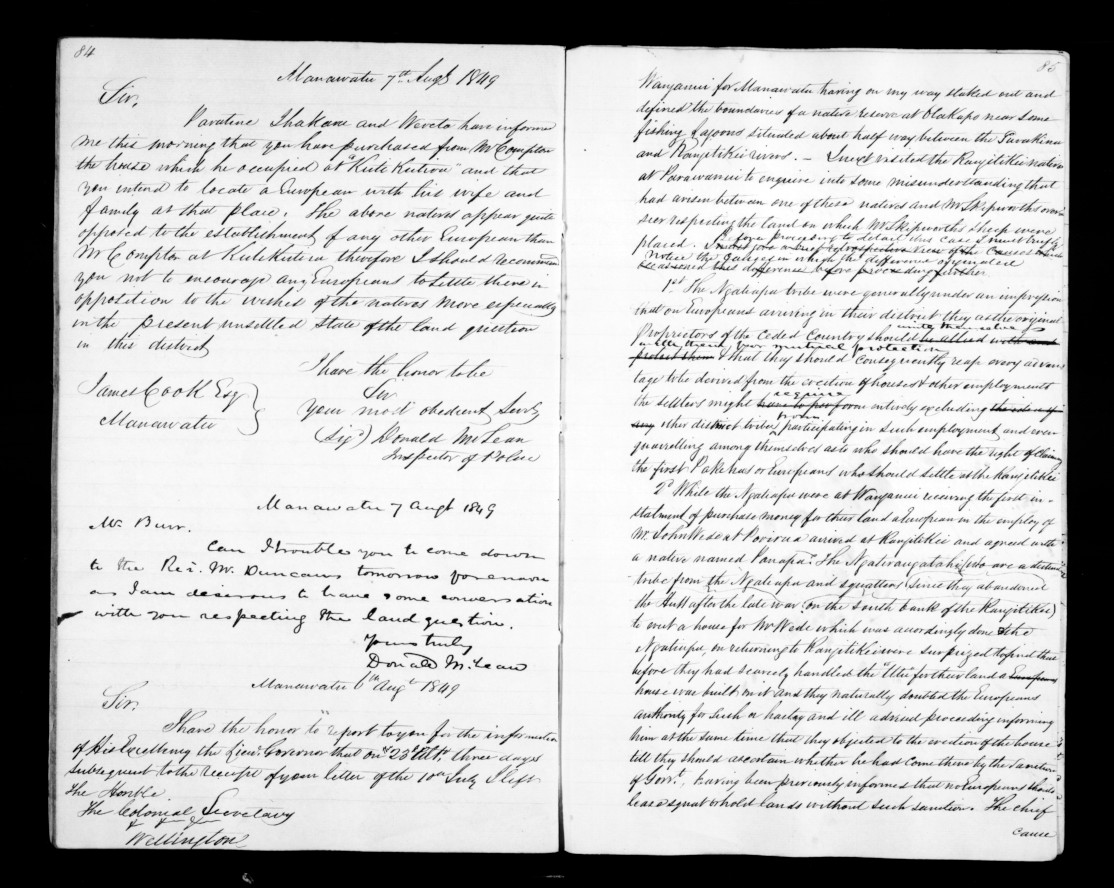 84
Manawatu 7th Augt 1849
Sir,
Paratene Ihakara and Wereta have informed
me this morning that you have purchased from Mr Compton
the house which he occupied at "Kutikutira" and that
you intend to locate a European with his wife and
family at that place. The above natives appear quite
opposed to the establishment of any other European than
Mr Compton at Kutikutira therefore I should recommend
you not to encourage any Europeans to settle there in
opposition to the wishes of the natives more especially
in the present unsettled state of the land question
in this district
I have the honor to be
Sir
James Cook Esq
your most obedient Servt
Manawatu
(Sigd) Donald McLean
Inspector of Police
Manawatu 7 Augt 1849
Mr Burr.
Can I trouble you to come down
to the Revd. Mr. Duncans tomorrow forenoon
as I am desirous to have some conversation
with you respecting the land question.
Yours truly
Donald McLean
Manawatu 6th Augt 1849
Sir.
I have the honor to report to you for the information
of His Excellency the Lieut Governor that on 23d Ult. three days
subsequent to the receipt of your letter of the 10th July I left
The Honble
The Colonial Secretary
Wellington
85
Wanganui for Manawatu having on my way staked out and
defined the boundaries of a native reserve at Otakapo near some
fishing lagoons situated about half way between the Turakina
and Rangitikei rivers. – I next visited the Rangitikei natives
at Parawanui to enquire into some misunderstanding that
had arisen between one of these natives and Mr Skipworths over
seer respecting the land on which Mr Skipworths sheep were
placed. before proceeding to detail this case I must briefly
notice the causes in which the difference originated
occasioned this difference before proceeding further
1st The Ngatiapa tribe were generally under an impression
that on Europeans arriving in their district they as the original
Proprietors of the Ceded Country should be allied with and
unite themselves
with them for mutual protection
protect them & that they should consequently reap every advan
tage to be derived from the erection of houses & other employments
require
the settlers might have to perform entirely excluding
from
any other district tribes participating in such employment, and even
quarrelling among themselves as to who should have the right of claiming
the first Pakehas or Europeans who should settle at the Rangitikei
2d While the Ngatiapa were at Wanganui receiving the first in-
stalment of purchase money for their land a European in the employ of
Mr. John Wade at Porirua arrived at Rangitikei and agreed with
a native named Panapa. (The Ngatirangatahi, who are a distinct
tribe from the Ngatiapa and squatters since they abandoned
the Hutt after the late war on the South bank of the Rangitikei)
to erect a house for Mr Wade which was accordingly done & the
Ngatiapa, on returning to Rangitikei were surprized to find that
before they had scarcely handled the "Utu" for their land a European
house was built on it and they naturally doubted the Europeans
authority for such a hasty and ill advised proceeding informing
him at the same time that they objected to the erection of the house
till they should ascertain whether he had come there by the sanction
of Govt., having been previously informed that no Europeans should
lease squat or hold lands without such sanction. The chief
cause